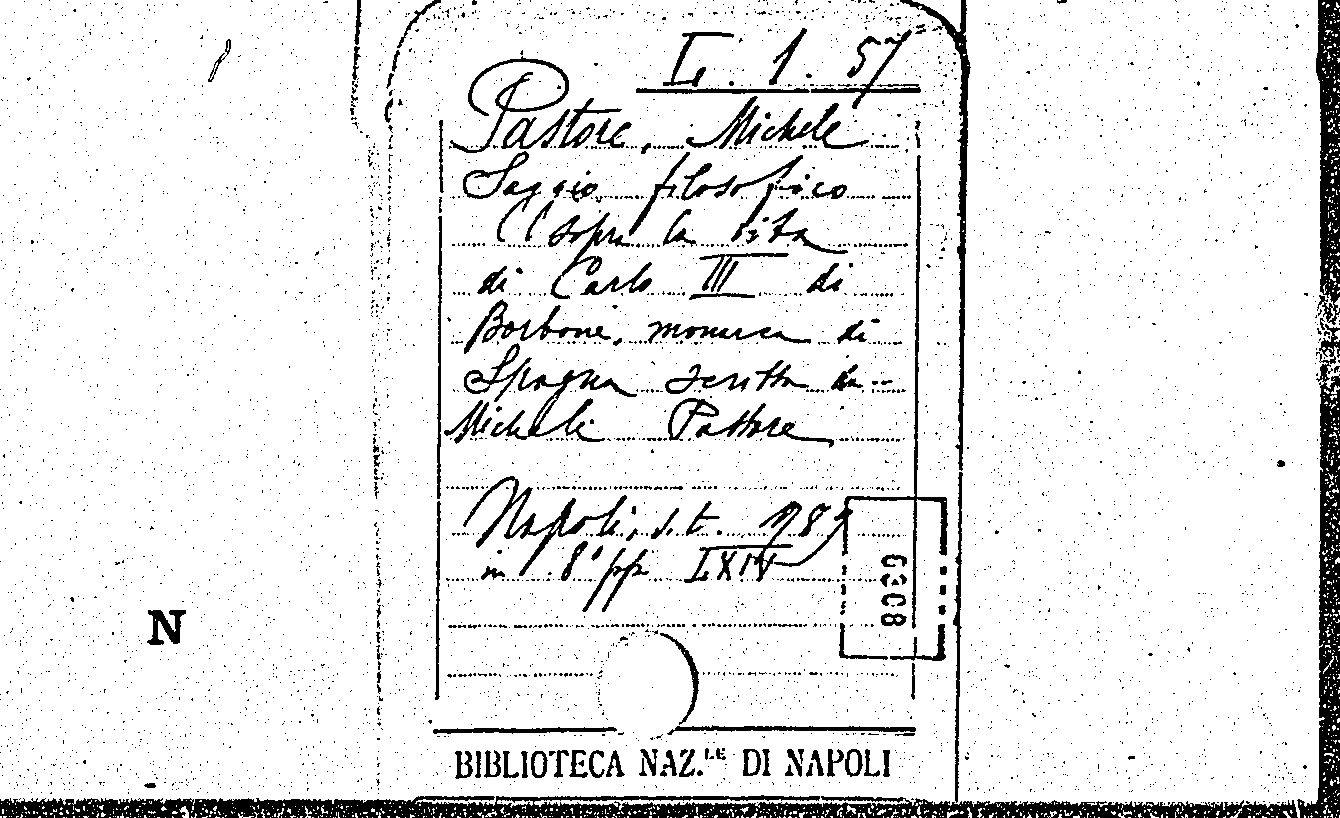 L. 1. 57
Pastore, Michele
Saggio filosofico
sopra la vita
di Carlo III di
Borbone, monarca di
Spagna scritta da..
Michele Pastore
Napoli, s.t. 1789
in 8° pp. LXIV
6308
N
BIBLIOTECA NAZ.LE DI NAPOLI